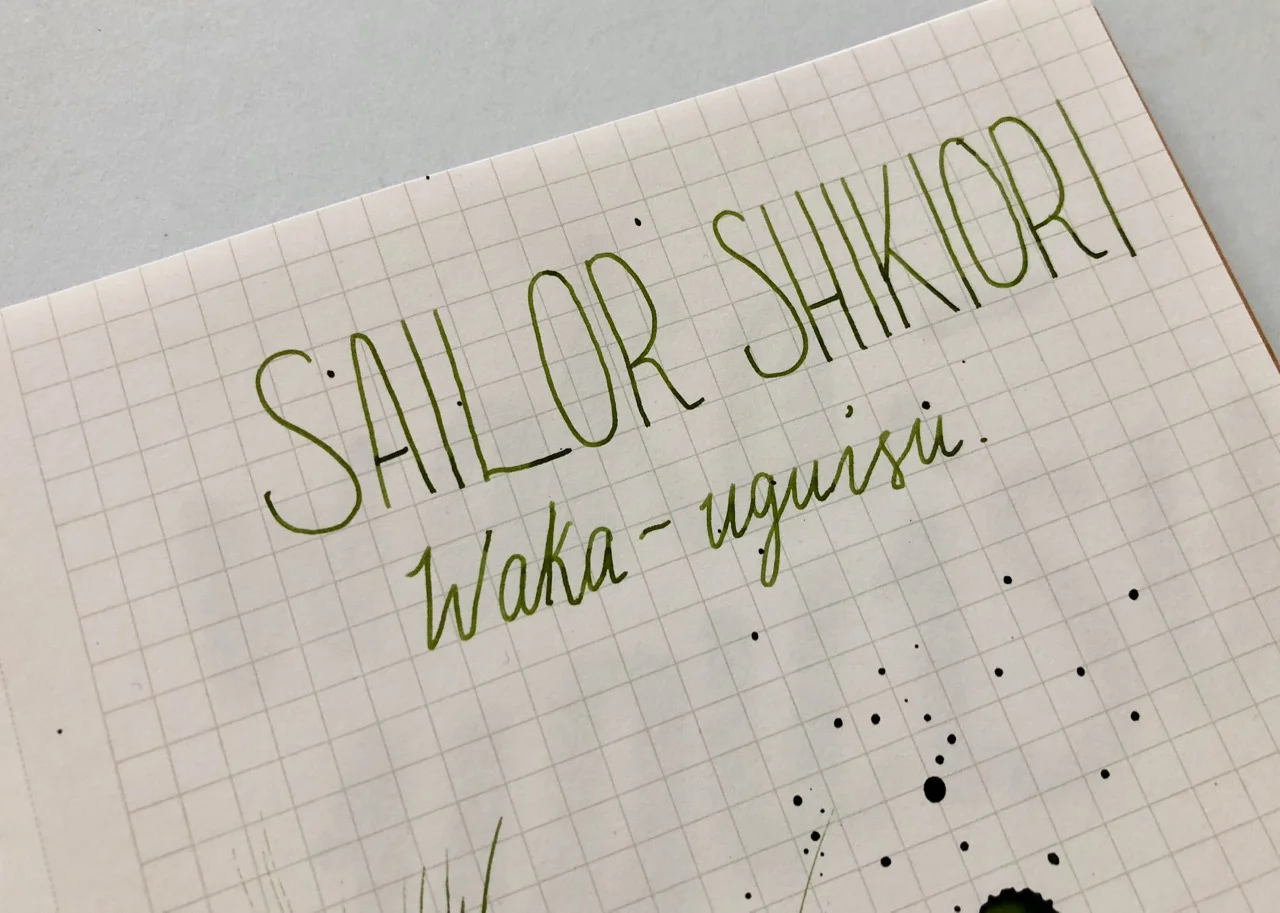 SAILOR SHIKIORI
Waka-uguisu.